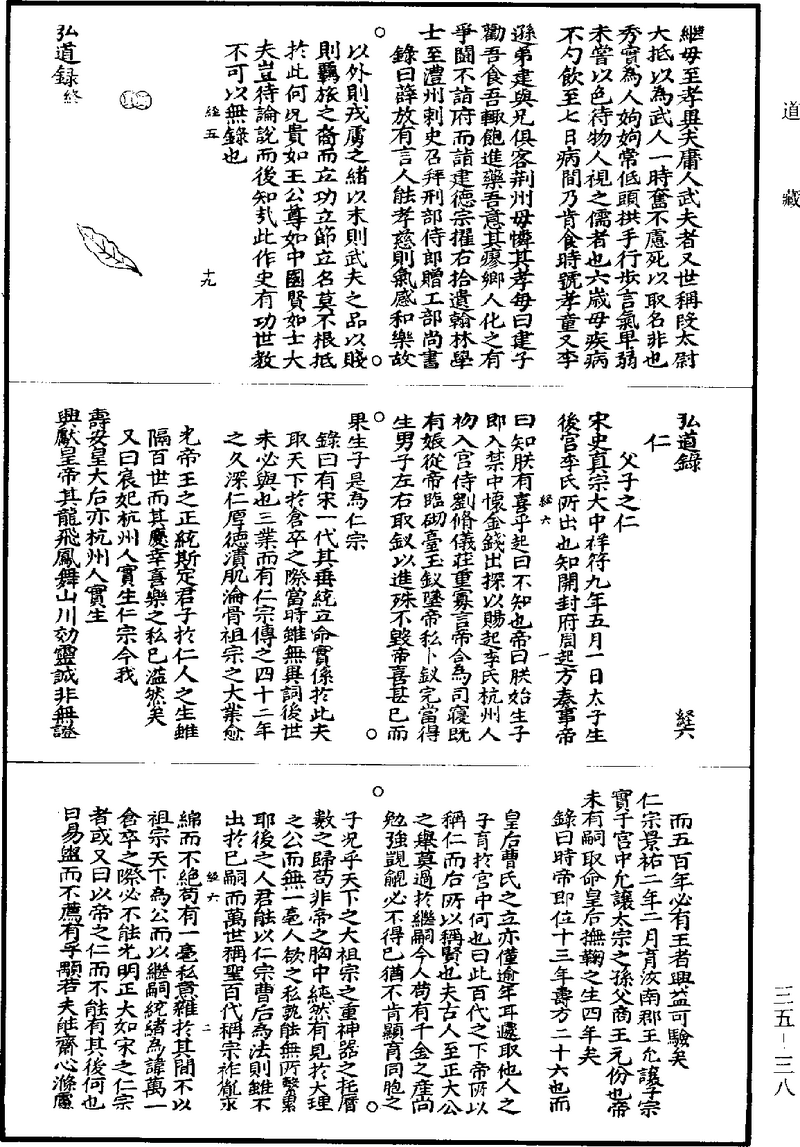 道藏
繼母至孝與夫庸人武夫者又世稱段太尉
大抵以為武人一時奮不慮死以取名非也
秀實為人姁姁常低頭拱手行步言氣卑弱
未嘗以色待物人視之儒者也六歲母疾病
不勺飲至七日病間乃肯食時號孝童又李
遜弟建與兄俱客荆州母憐其孝每曰建子
勸吾食吾輒飽進藥吾意其瘳鄉人化之有
爭鬪不詣府而詣建德宗擢右拾遺翰林學
士至澧州刺史召拜刑部侍郎贈工部尚書
錄曰薛放有言人能孝慈則氣感和樂故
以外則戎虜之緒以末則武夫之品以賤
則羈旅之裔而立功立節立名莫不根抵
於此何况貴如王公尊如中國賢如士大
夫豈待論說而後知㢤此作史有功世教
不可以無錄也
經五
十九
弘道録終
弘道錄
經六
仁
父子之仁
宋史真宗大中祥符九年五月一日太子生
後宫李氏所出也知開封府周起方奏事帝
經六
一
曰知朕有喜乎起曰不知也帝曰朕始生子
即入禁中懷金錢出探以賜起李氏杭州人
初入宫侍劉脩儀莊重寡言帝令為司寢既
有娠從帝臨砌臺玉釵墜帝私卜釵完當得
生男子左右取釵以進殊不毀帝喜甚已而
果生子是為仁宗
錄曰有宋一代其垂統立命實係於此夫
取天下於倉卒之際當時雖無異詞後世
未必與也三業而有仁宗傳之四十二年
之久深仁厚德漬肌淪骨祖宗之大業愈
光帝王之正統斯定君子於仁人之生雖
隔百世而其慶幸喜樂之私已溢然矣
又曰宸妃杭州人實生仁宗今我
壽安皇太后亦杭州人實生
興獻皇帝其龍飛鳳舞山川効靈誠非無證
而五百年必有王者興益可驗矣
仁宗景祐二年二月育汝南郡王允讓子宗
實于宫中允讓太宗之孫父商王元份也帝
未有嗣取命皇后撫鞠之生四年矣
錄曰時帝即位十三年壽方二十六也而
皇后曹氏之立亦僅逾年耳遽取他人之
子育於宫中何也曰此百代之下帝所以
稱仁而后所以稱賢也夫古人至正大公
之舉莫過於繼嗣今人苟有千金之產尚
勉強覬覦必不得已猶不肯顯育同胞之
子况乎天下之大祖宗之重神器之托曆
數之歸苟非帝之胸中純然有見於大理
之公而無一毫人欲之私孰能無所繫累
耶後之人君能以仁宗曹后為法則雖不
出於已嗣而萬世稱聖百代稱宗祚胤永
經六
二
綿而不絕苟有一毫私意雜於其間不以
祖宗天下為公而以繼嗣統緒為諱萬一
倉卒之際必不能光明正大如宋之仁宗
者或又曰以帝之仁而不能有其後何也
曰易盥而不薦有孚顒若夫能齋心滌慮
三五－三八